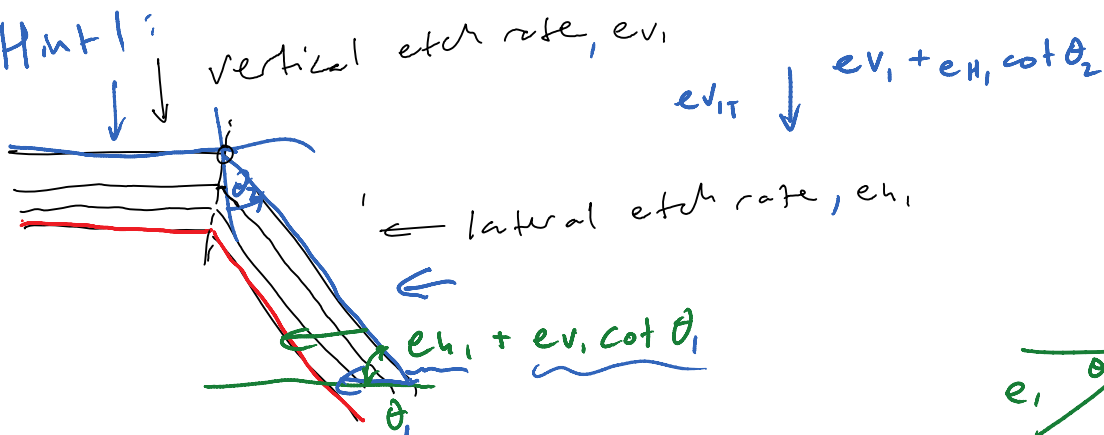 Hint 1:
vertical etch rate, ev₁
ev₁ + eH₁ cot θ₂
ev₁T
θ₂
lateral etch rate, eh₁
eh₁ + ev₁ cot θ₁
θ₁
θ
e₁